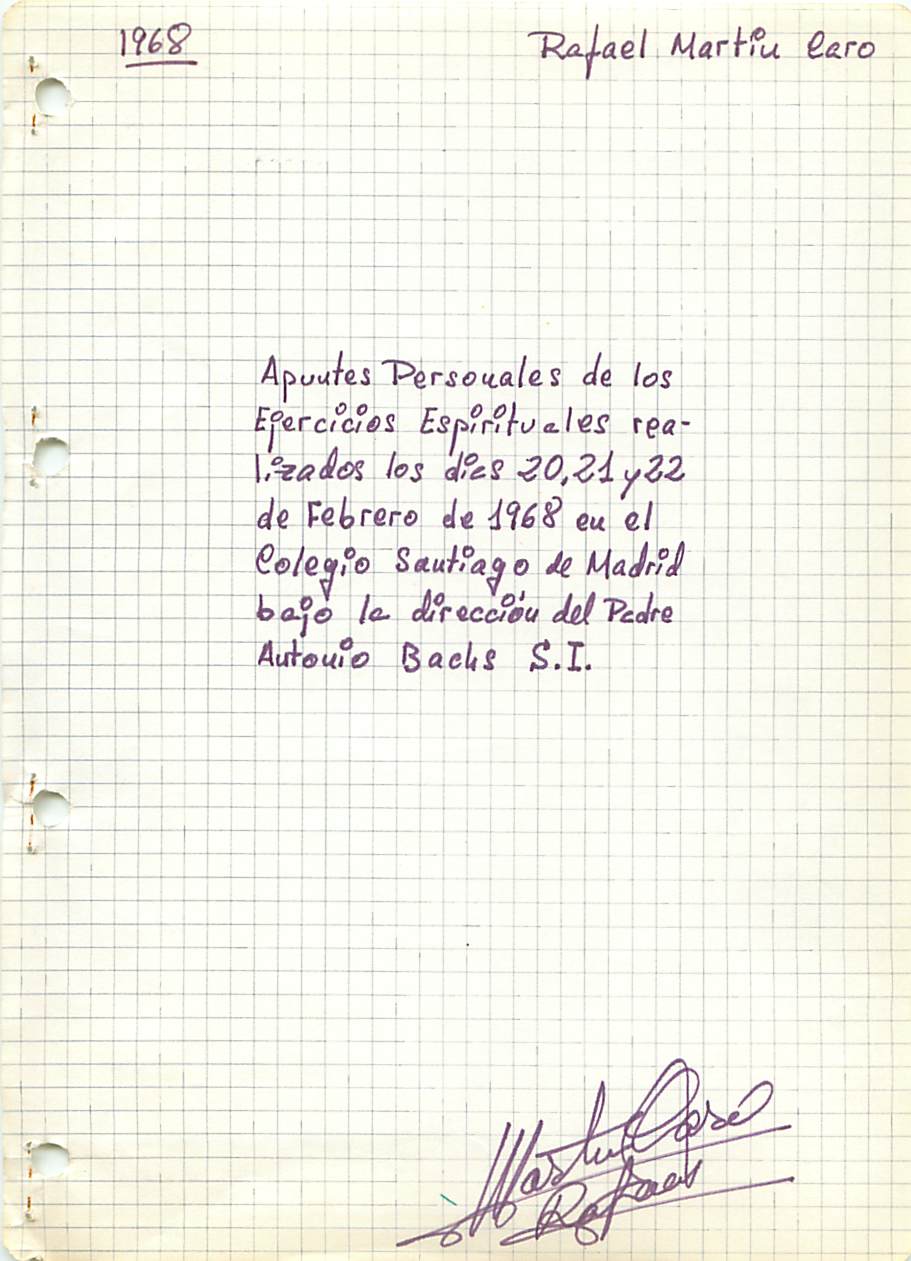 1968
Rafael Martin Caro
Apuntes Personales de los
Ejercicios Espirituales rea-
lizados los dias 20, 21 y 22
de Febrero de 1968 en el
Colegio Santiago de Madrid
bajo la dirección del Padre
Antonio Bachs S.I.
Martin Caro
Rafael